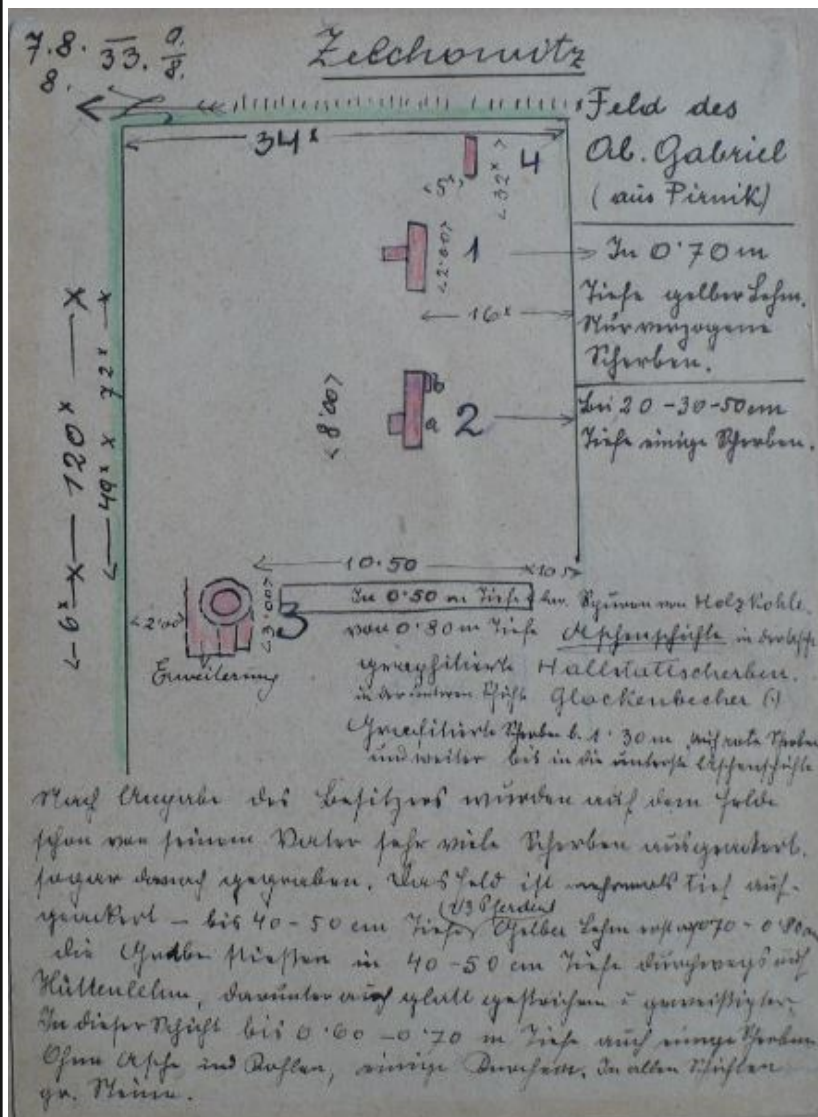 7.8. 33. a/8.
8.
Zelchowitz
34ˣ
Feld des
Al. Gabriel
(aus Pirnik)
4
<5ˣ>
<32ˣ>
1
<2·00>
16ˣ
In 0·70 m
Tiefe gelber Lehm.
Nur verzogene
Scherben.
<8·00>
b
a
2
Bei 20-30-50 cm
Tiefe einige Scherben.
<6ˣ X 120ˣ X
<49ˣ X 72ˣ X
10·50
<2·00>
<3·00>
3
Erweiterung
In 0·50 m Tiefe Spuren von Holzkohle.
von 0·80 m Tiefe Aschenschichte in
graphitierte Hallstattscherben.
in der unteren Schicht Glockenbecher (?)
Grafitierte Scherben b. 1·30 m, auch rote Scherben
und weiter bis in die unterste Aschenschichte
Nach Angabe des Besitzers wurden auf dem Felde
schon von seinem Vater sehr viele Scherben ausgeackert.
sogar danach gegraben. Das Feld ist mehrmals tief auf-
geackert – bis 40-50 cm Tiefe Gelber Lehm erst 0·70 - 0·80 m
die Grabe stiessen in 40-50 cm Tiefe durchwegs auf
Hüttenlehm, darunter auch glatt gestrichen
In dieser Schicht bis 0·60 - 0·70 m Tiefe auch einige Scherben
Ohne Asche und Kohlen, einige Knochen. In allen Schichten
gr. Steine.